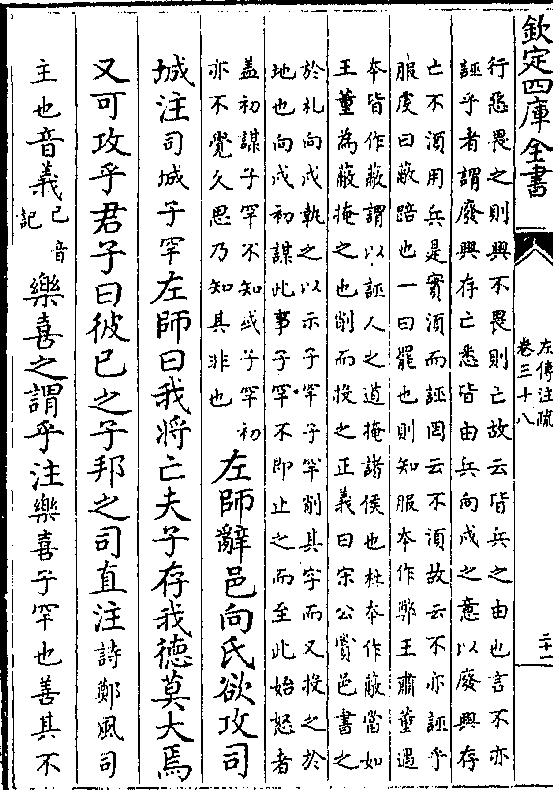 欽定四庫全書
左傳注疏
卷三十八
二十一
行惡畏之則興不畏則亡故云皆兵之由也言不亦
誣乎者謂廢興存亡悉皆由兵向戌之意以廢興存
亡不須用兵是實須而誣罔云不須故云不亦誣乎
服虔曰蔽踣也一曰罷也則知服本作弊王肅董遇
本皆作蔽謂以誣人之道掩諸侯也杜本作蔽當如
王董為蔽掩之也削而投之正義曰宋公賞邑書之
於札向戌執之以示子罕子罕削其字而又投之於
地也向戌初謀此事子罕不即止之而至此始怒者
蓋初謀子罕不知或子罕初
亦不覺久思乃知其非也
左師辭邑向氏欲攻司
城注司城子罕左師曰我將亡夫子存我德莫大焉
又可攻乎君子曰彼已之子邦之司直注詩鄭風司
主也音義已音
記
樂喜之謂乎注樂喜子罕也善其不